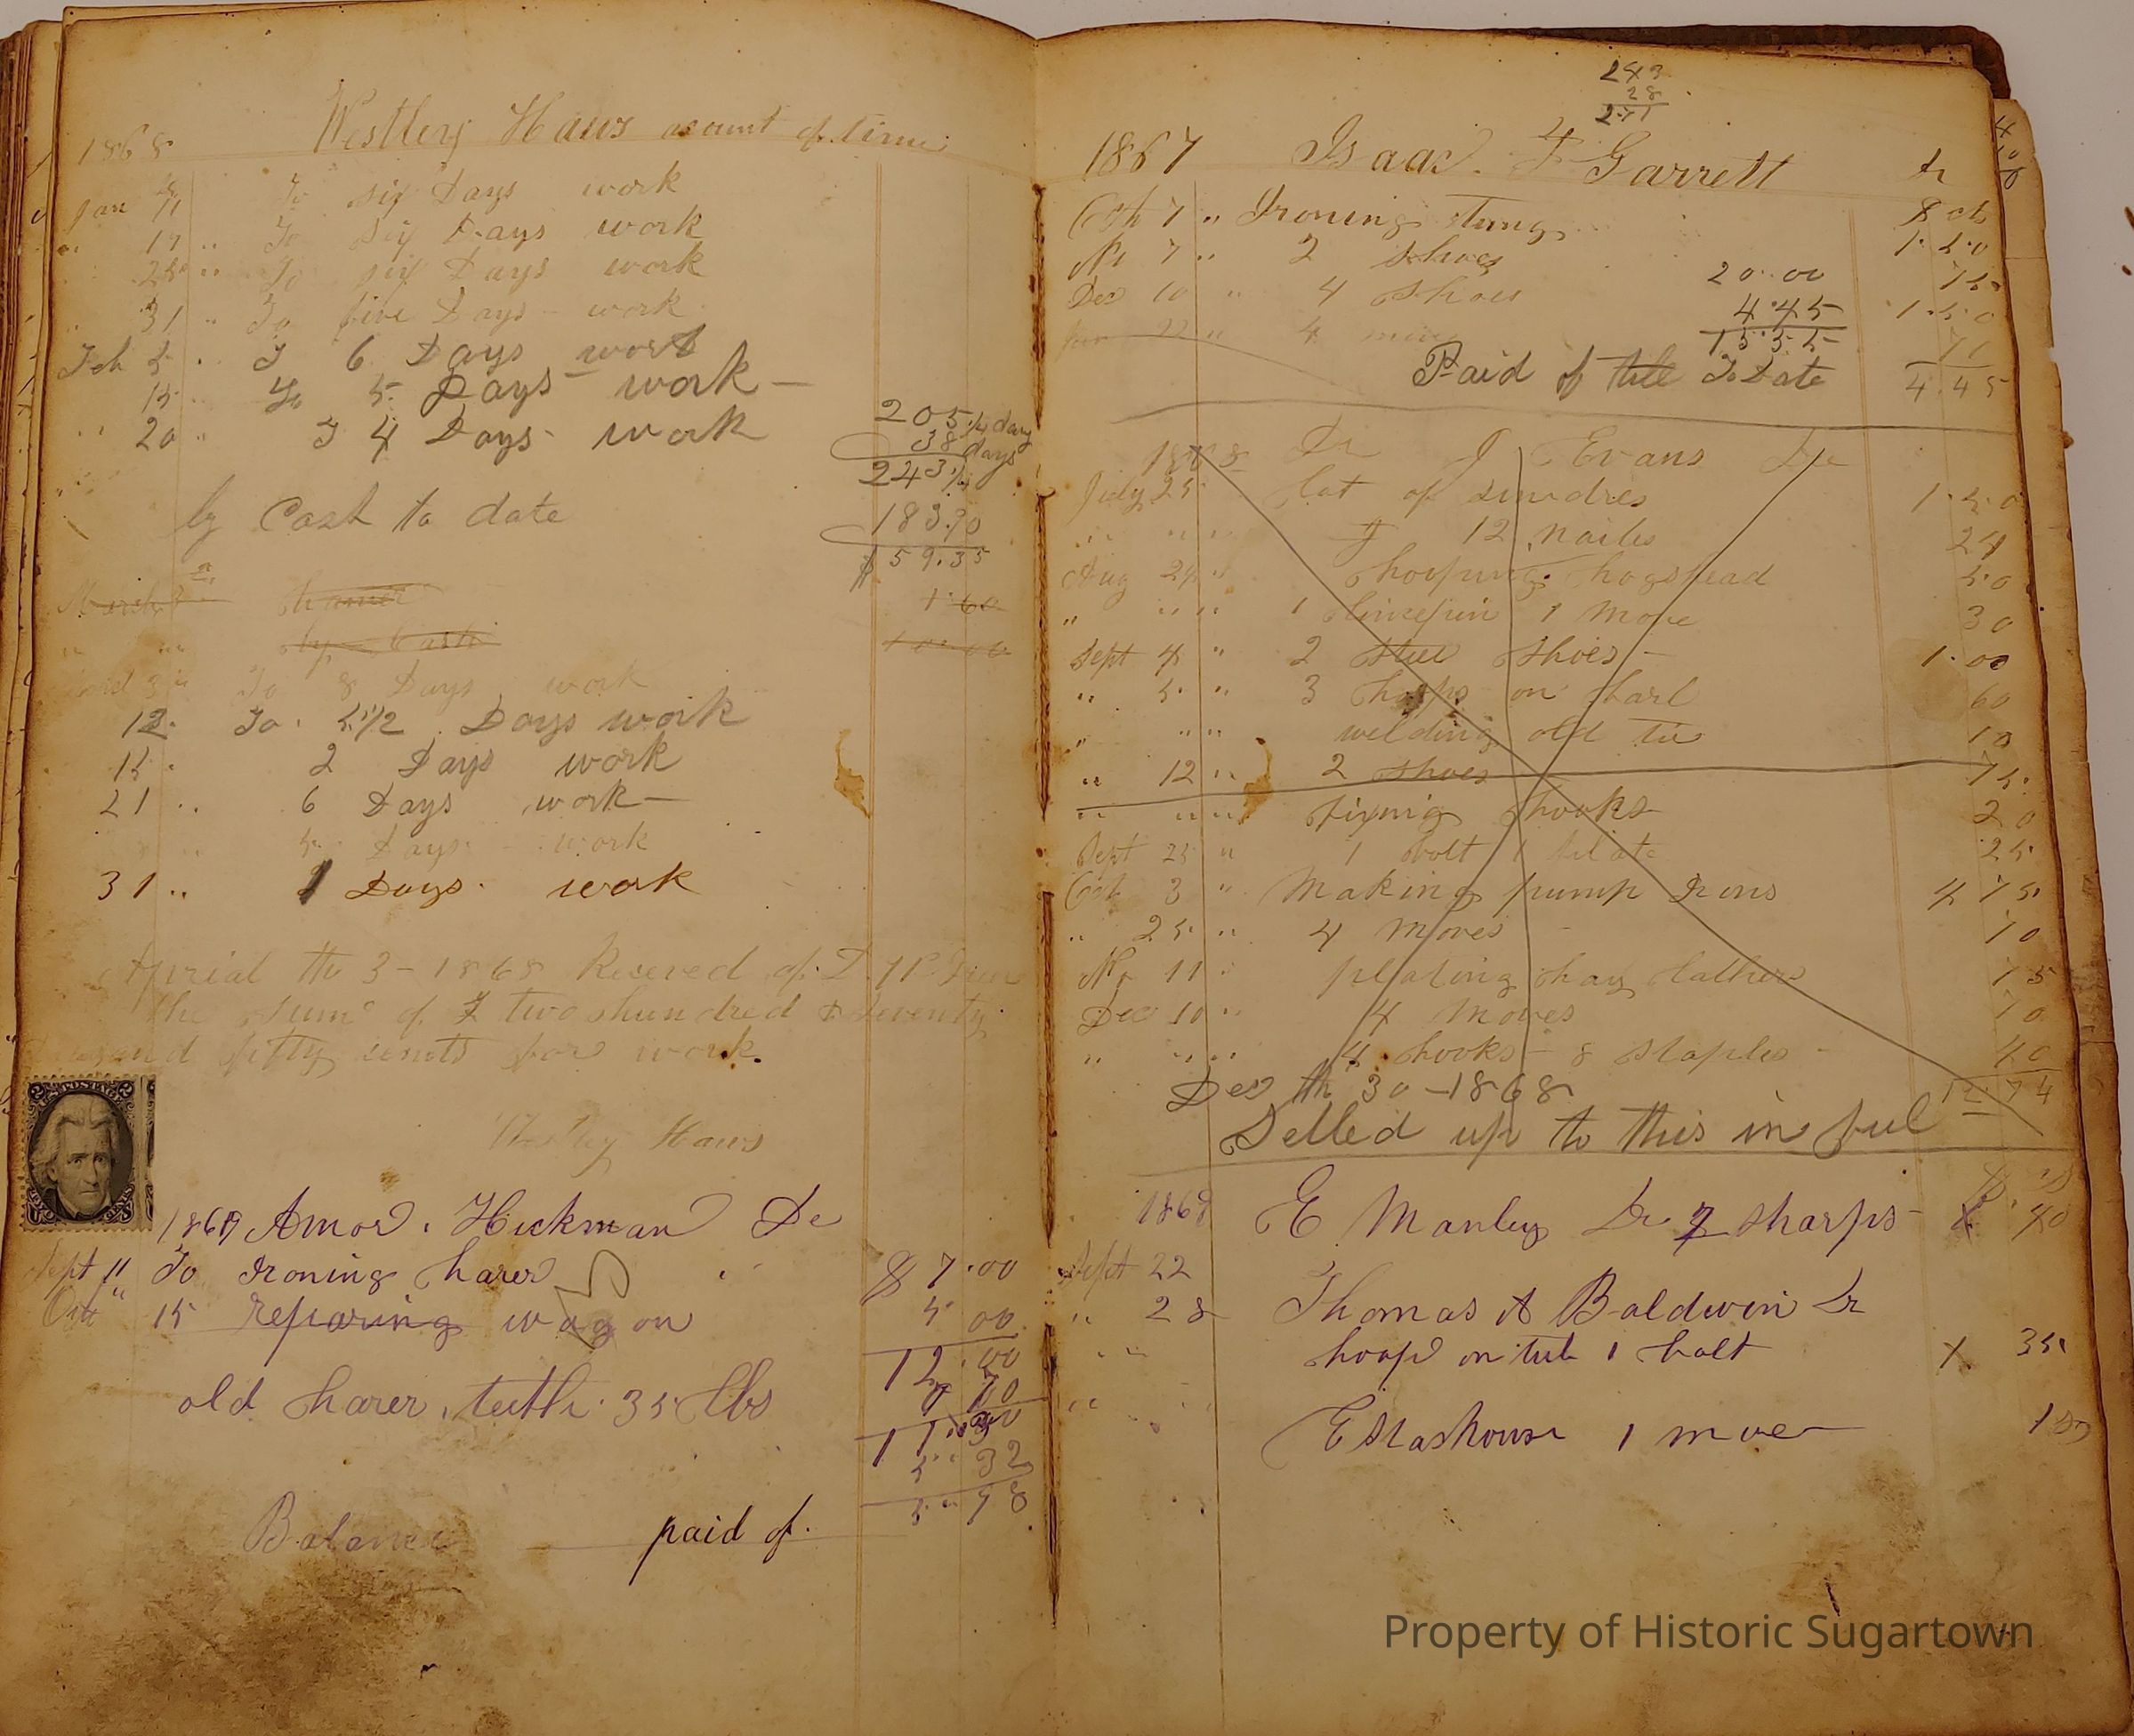 1868 Westlery Haws acount of time
Jan 11 To six Days work
" 17 " To six Days work
25 " To six Days work
31 " To five Days work
Feb 5 " T 6 Days work
15 " To 5 Days work
" 20 " T 4 Days work
205 1/4 days
38 days
243 1/4
by Cash to date 183.90
$59.35
1.60
by Cash 10.00
To 8 Days work
12 To 5 1/2 Days work
15 2 Days work
21 " 6 Days work
5 Days work
31 " 1 Days work
Aprial th 3 - 1868 Receved of
the sum of $ two hundred & seventy
and fifty cents for work.
Westley Haws
POSTAGE
1869 Amos Hickman De
Sept 11 To Ironing harer $ 7.00
Oct 15 reparing wagon 5 00
12.00
old harer teeth 35 lbs 70
11 30
5 32
5 98
Balance paid of.
243
28
271
1867 Isaac F Garrett dr
Octh 7 " Ironing stung 8 cts
No 7 " 2 shoes 1.50
Dec 10 " 4 shoes 75
1.50
4 70
20.00
4.45
15.55
Paid of till To Date 4.45
1868 Dr J Evans De
July 25 lot of sundres 1.50
" " " 12 nailes 24
Aug 24 " hooping hogshead 50
" " " 1 linespin 1 move 30
Sept 4 " 2 steel shoes 1.00
" 5 " 3 hoops on barl 60
" " " welding old tie 10
" 12 " 2 shoes 75
" " " fixing hooks 20
Sept 25 " 1 bolt 1 plate 25
Oct 3 " Making pump Irons 4 75
" 25 " 4 Moves 70
No 11 " plating hay lathers 75
Dec 10 " 4 Moves 70
" " " 4 hooks 8 staples 40
12.74
Dec th 30 - 1868
Setled up to this in ful
1868 E Manley Dr 2 sharps 40
Sept 22
" 28 Thomas A Baldwin Dr
hoop on tub 1 bolt X 35
1 move
Property of Historic Sugartown